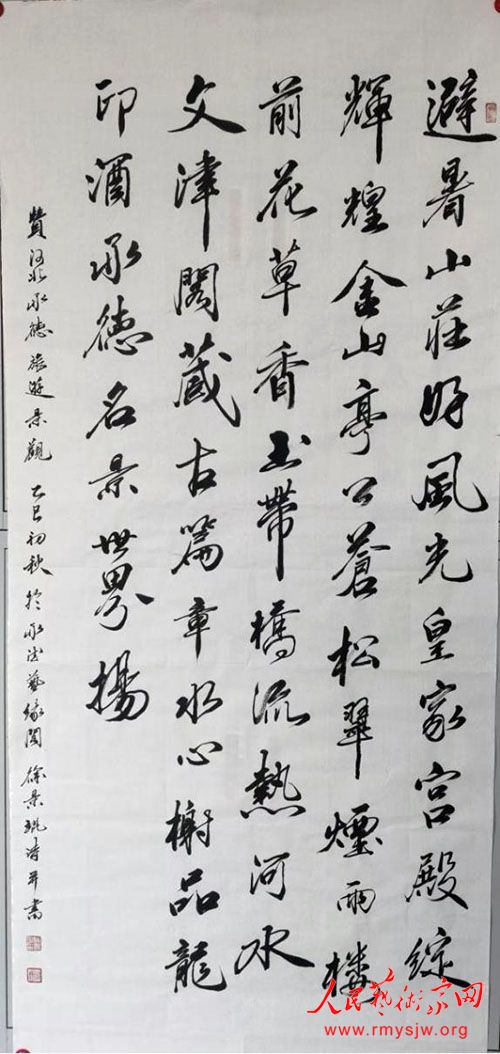 避暑山莊好風光皇家宮殿綻
輝煌金山亭公蒼松翠煙雨樓
前花草香玉帶橋流熱河水
文津閣藏古篇章水心榭品龍
印酒承德名景世界揚
贊河北承德旅遊景觀 乙巳初秋於承德藝緣閣 徐景詩并書
人民藝術家网
www.rmysjw.org